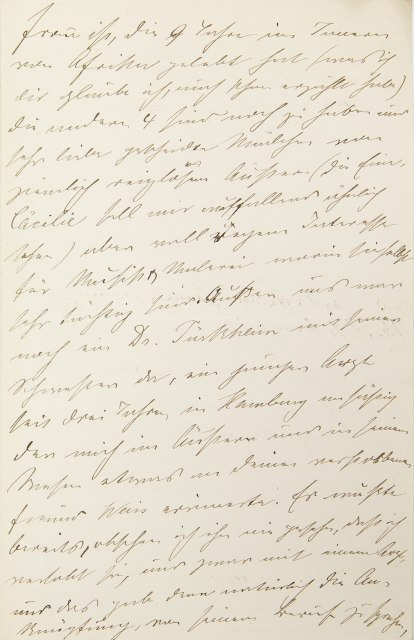 Frau ist, die 9 Jahre im Innern
von Afrika gelebt hat (was ich
dir glaube ich, auch schon erzählt habe)
die andern 4 sind noch zu haben und
sehr liebe gescheidte Mädchen von
ziemlich reizlosem Äussern (die Eine,
Cäcilie soll mir auffallend ähnlich
sehen) aber voll regem Interesse
für Musik & Malerei worin sie selbst
sehr tüchtig sind. Außer uns war
noch ein Dr. Türkheim mit seiner
Schwester da, ein junger Arzt
seit drei Jahren in Hamburg ansässig
der mich im Äussern und in seinem
Wesen etwas an deinen verstorbenen
Freund Weis erinnerte. Er wusste
bereits, obschon ich ihn nie gesehen, dass ich
verlobt sei, und zwar mit einem Arzt,
und das gab dann natürlich die An-
knüpfung, von seinem Berufe zu sprechen,